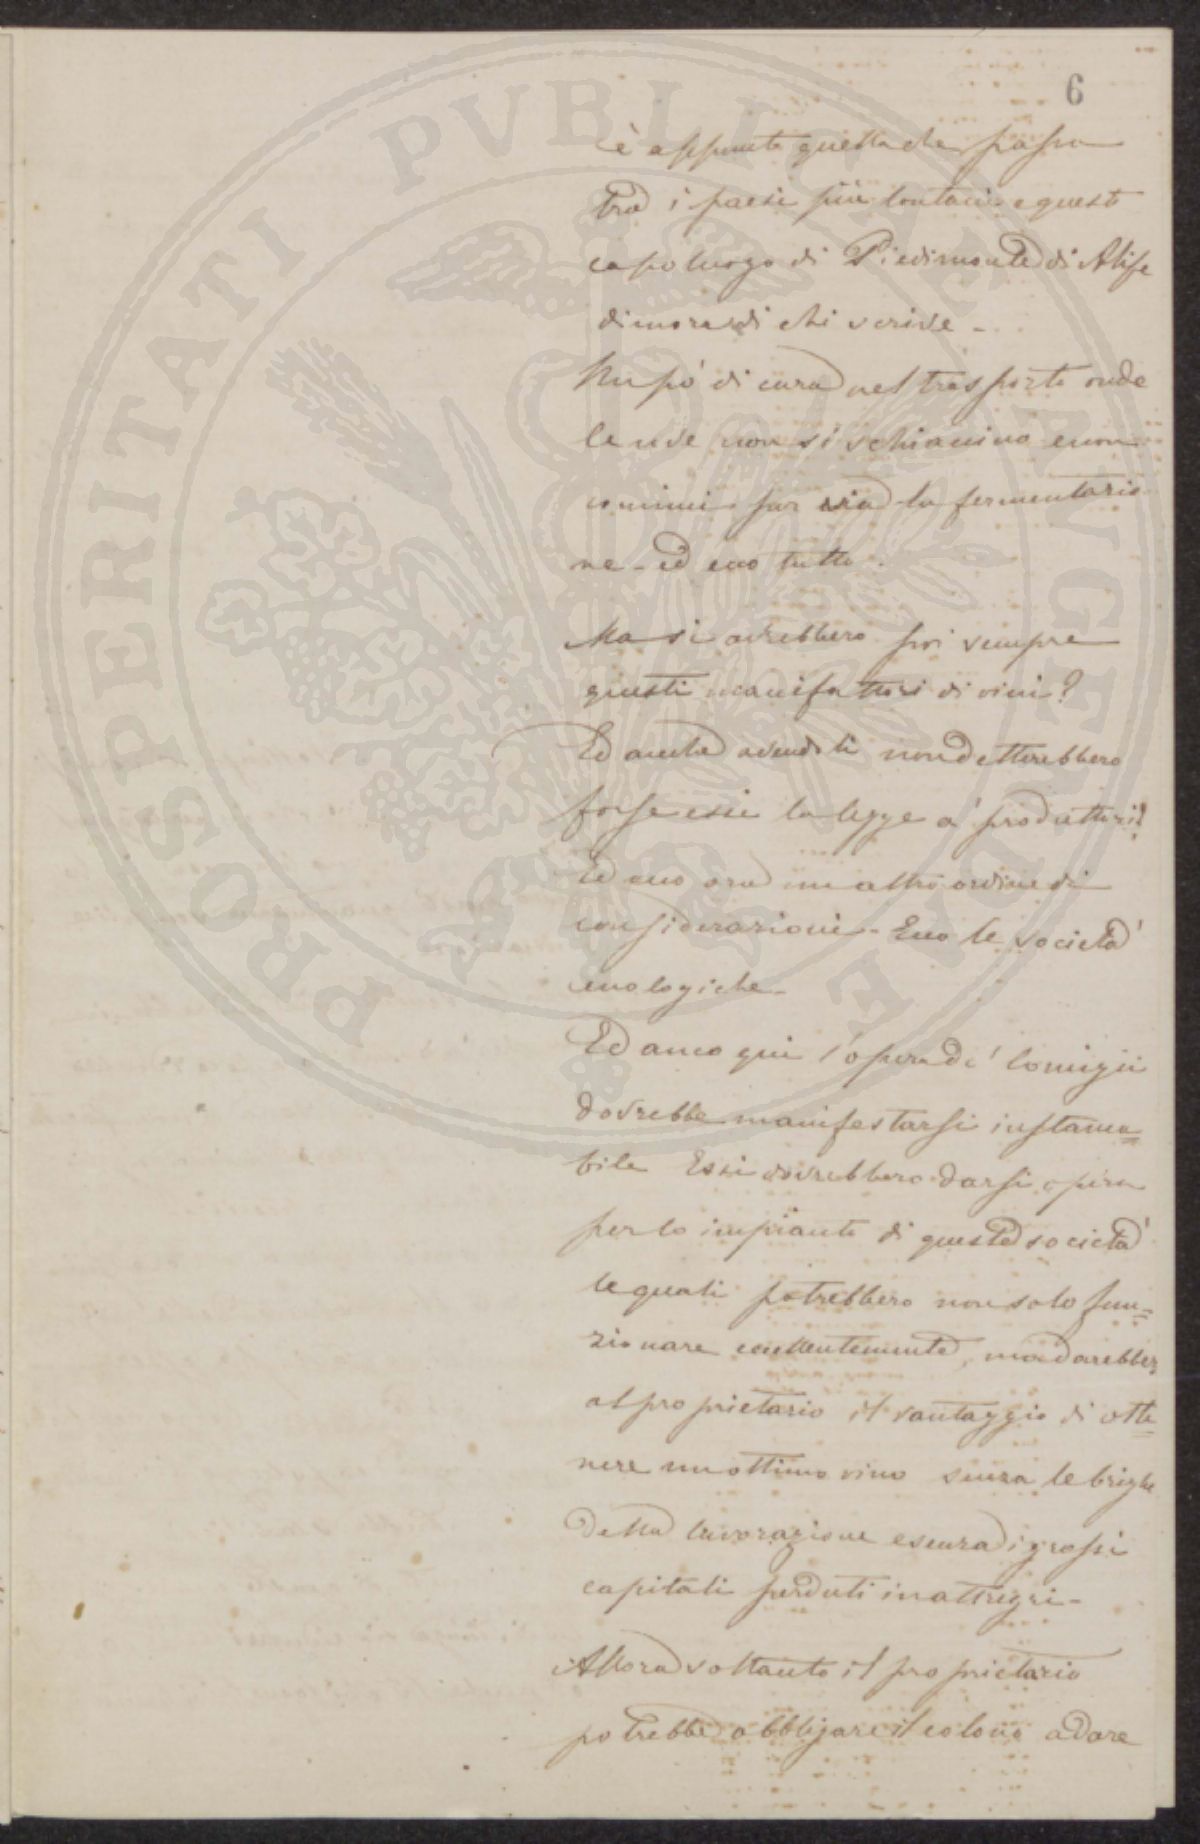 6
è appunto quella che passa
tra i paesi più lontani e questo
capoluogo di Piedimonte di Alife
dimora di chi scrive -
Un pò di cura nel trasporto onde
le uve non si schiacino e non
cominci per via la fermentazio
ne - ed ecco tutto.
Ma si avrebbero poi sempre
questi manifattori di vini?
Ed anche avendoli non detterebbero
forse essi la legge a' produttori?
Ed ecco ora un altro ordine di
considerazioni - Ecco le società
enologiche -
Ed anco qui l'opera de' Comizii
dovrebbe manifestarsi instanca=
bile Essi dovrebbero darsi opera
per lo impianto di queste società
le quali potrebbero non solo fun=
zionare eccellentemente, ma darebbero
al proprietario il vantaggio di otte=
nere un ottimo vino senza le brighe
della lavorazione e senza i grossi
capitali perduti in attrezzi -
Allora soltanto il proprietario
potrebbe obbligare il colono a dare
PROSPERITATI PVBLICAE AVGENDAE